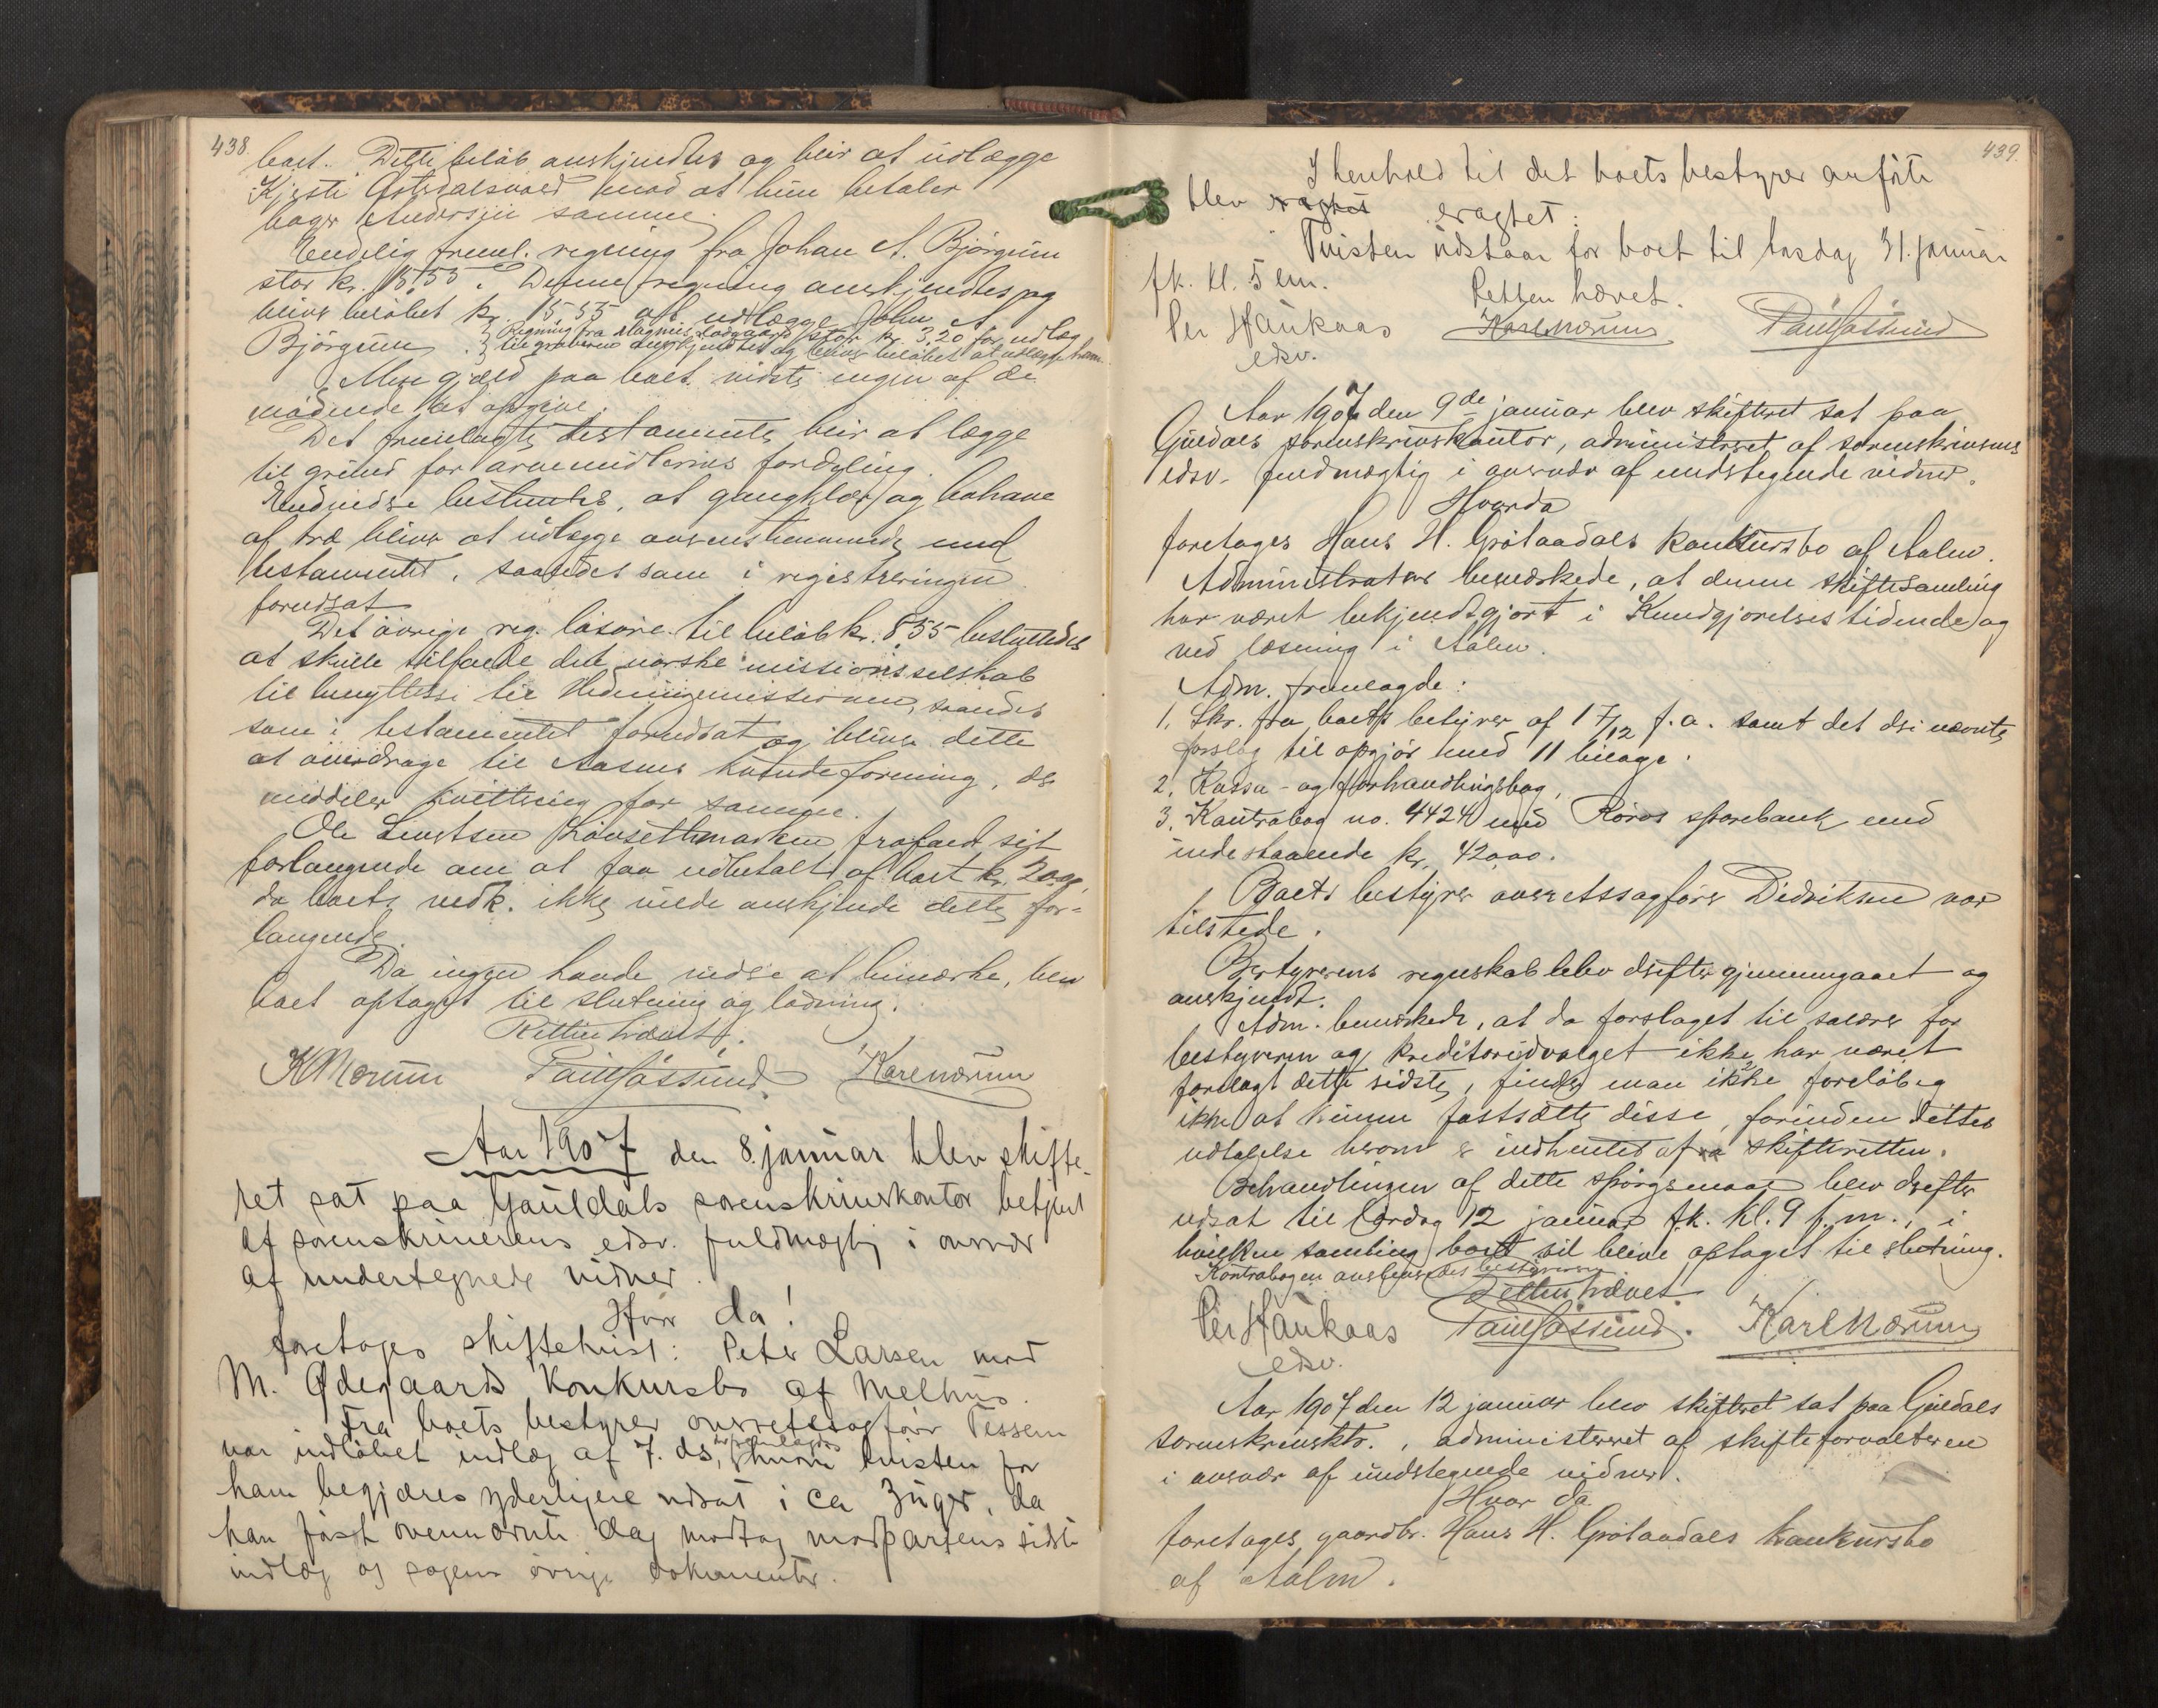 438.
boet. Dette beløb anskjendtes og blir at udlægge
Kjesti Østerdalsvold mod at hun betaler
bager Andersen samme.
Endelig freml. regning fra Johan A. Bjørgum
stor kr. 15.55. Denne regning anskjendtes og
blive beløbet kr. 15.55 at udlægge John A.
Bjørgum. Regning fra Magnus Ladgaard stor kr. 3.20 for udlæg
til graveren anskjendtes og blive beløbet at udlægge ham.
Mere gjæld paa boet vidste ingen af de
mødende at opgive.
Det fremlagte testamente blir at lægge
til grund for arvemidlernes fordeling.
Endvidere bestemtes, at gangklær og bohave
af træ bliver at udlægge overensstemmende med
testamentet, saaledes som i registreringen
forudsat.
Det øvrige reg. løsøre til beløb kr. 8.55 besluttedes
at skulle tilfalde det norske missionsselskab
til benyttelse til Hedningemissionen, saaledes
som i testamentet forudsat og bliver dette
at overdrage til Aasens kvindeforening, der
meddeler kvittering for samme.
Ole Leintsen Løvsethmarken frafaldt sit
forlangende om at faa udbetalt af boet kr. 20.00,
da boets vedk. ikke vilde anskjende dette for-
langende.
Da ingen havde videre at bemærke, blev
boet optaget til slutning og lodning.
Retten hævet.
K Mærum Paul Søssund Karl Mærum
Aar 1907 den 8. januar blev skifte-
ret sat paa Gauldals sorenskriverkontor betjent
af sorenskriverens edsv. fuldmægtig i overvær
af undertegnede vidner.
Hvor da!
foretoges skiftetvist: Peter Larsen mod
M. Ødegaards konkursbo af Melhus.
Fra boets bestyrer overretssagfører Tessem
var indløbet indlæg af 7. ds, der fremlagdes hvori tvisten for
ham begjæres yderligere udsat i ca 3 uger, da
han først ovennævnte dag modtog modpartens sidste
indlæg og sagens øvrige dokumenter.
439.
I henhold til det boets bestyrer anførte
blev eragtet eragtet:
Tvisten udstaar for boet til torsdag 31. januar
fk. kl. 5 em.
Retten hævet.
Per Haukaas Karl Mærum Paul Søssund
edsv.
Aar 1907 den 9de januar blev skifteret sat paa
Guldals sorenskriverkontor, administreret af sorenskriverens
edsv. fuldmægtig i overvær af undertegnede vidner.
Hvorda
foretoges Hans H. Grøtaadals konkursbo af Aalen.
Administrator bemærkede, at denne skiftesamling
har været bekjendtgjort i Kundgjørelsestidende og
ved læsning i Aalen.
Adm. fremlagde:
1. Skr. fra boets bestyrer af 17/12 f.a. samt det deri nævnte
forslag til opgjør med 11 bilage.
2. Kassa- og forhandlingsbog,
3. Kontrabog no. 4424 med Røros sparebank med
indestaaende kr. 420,00.
Boets bestyrer overretssagfører Didriksen var
tilstede.
Bestyrerens regnskab blev derefter gjennemgaaet og
anskjendt.
Adm. bemærkede, at da forslaget til salærer for
bestyreren og kreditorudvalget ikke har været
forelagt dette sidste, finder man ikke foreløbig
ikke at kunne fastsætte disse, forinden dettes
udtalelse herom er indhentet af skifteretten.
Behandlingen af dette spørgsmaal blev derefter
udsat til lørdag 12 januar fk. kl. 9 f.m., i
hvilken samling boet vil blive optaget til slutning.
Kontrabogen udleveredes bestyreren
Retten hævet
Per Haukaas Paul Søssund. Karl Mærum
edsv.
Aar 1907 den 12 januar blev skifteret sat paa Guldals
sorenskriverktr., administreret af skifteforvalteren
i overvær af undertegnede vidner.
Hvor da
foretoges gaardbr. Hans H. Grøtaadals konkursbo
af Aalen.